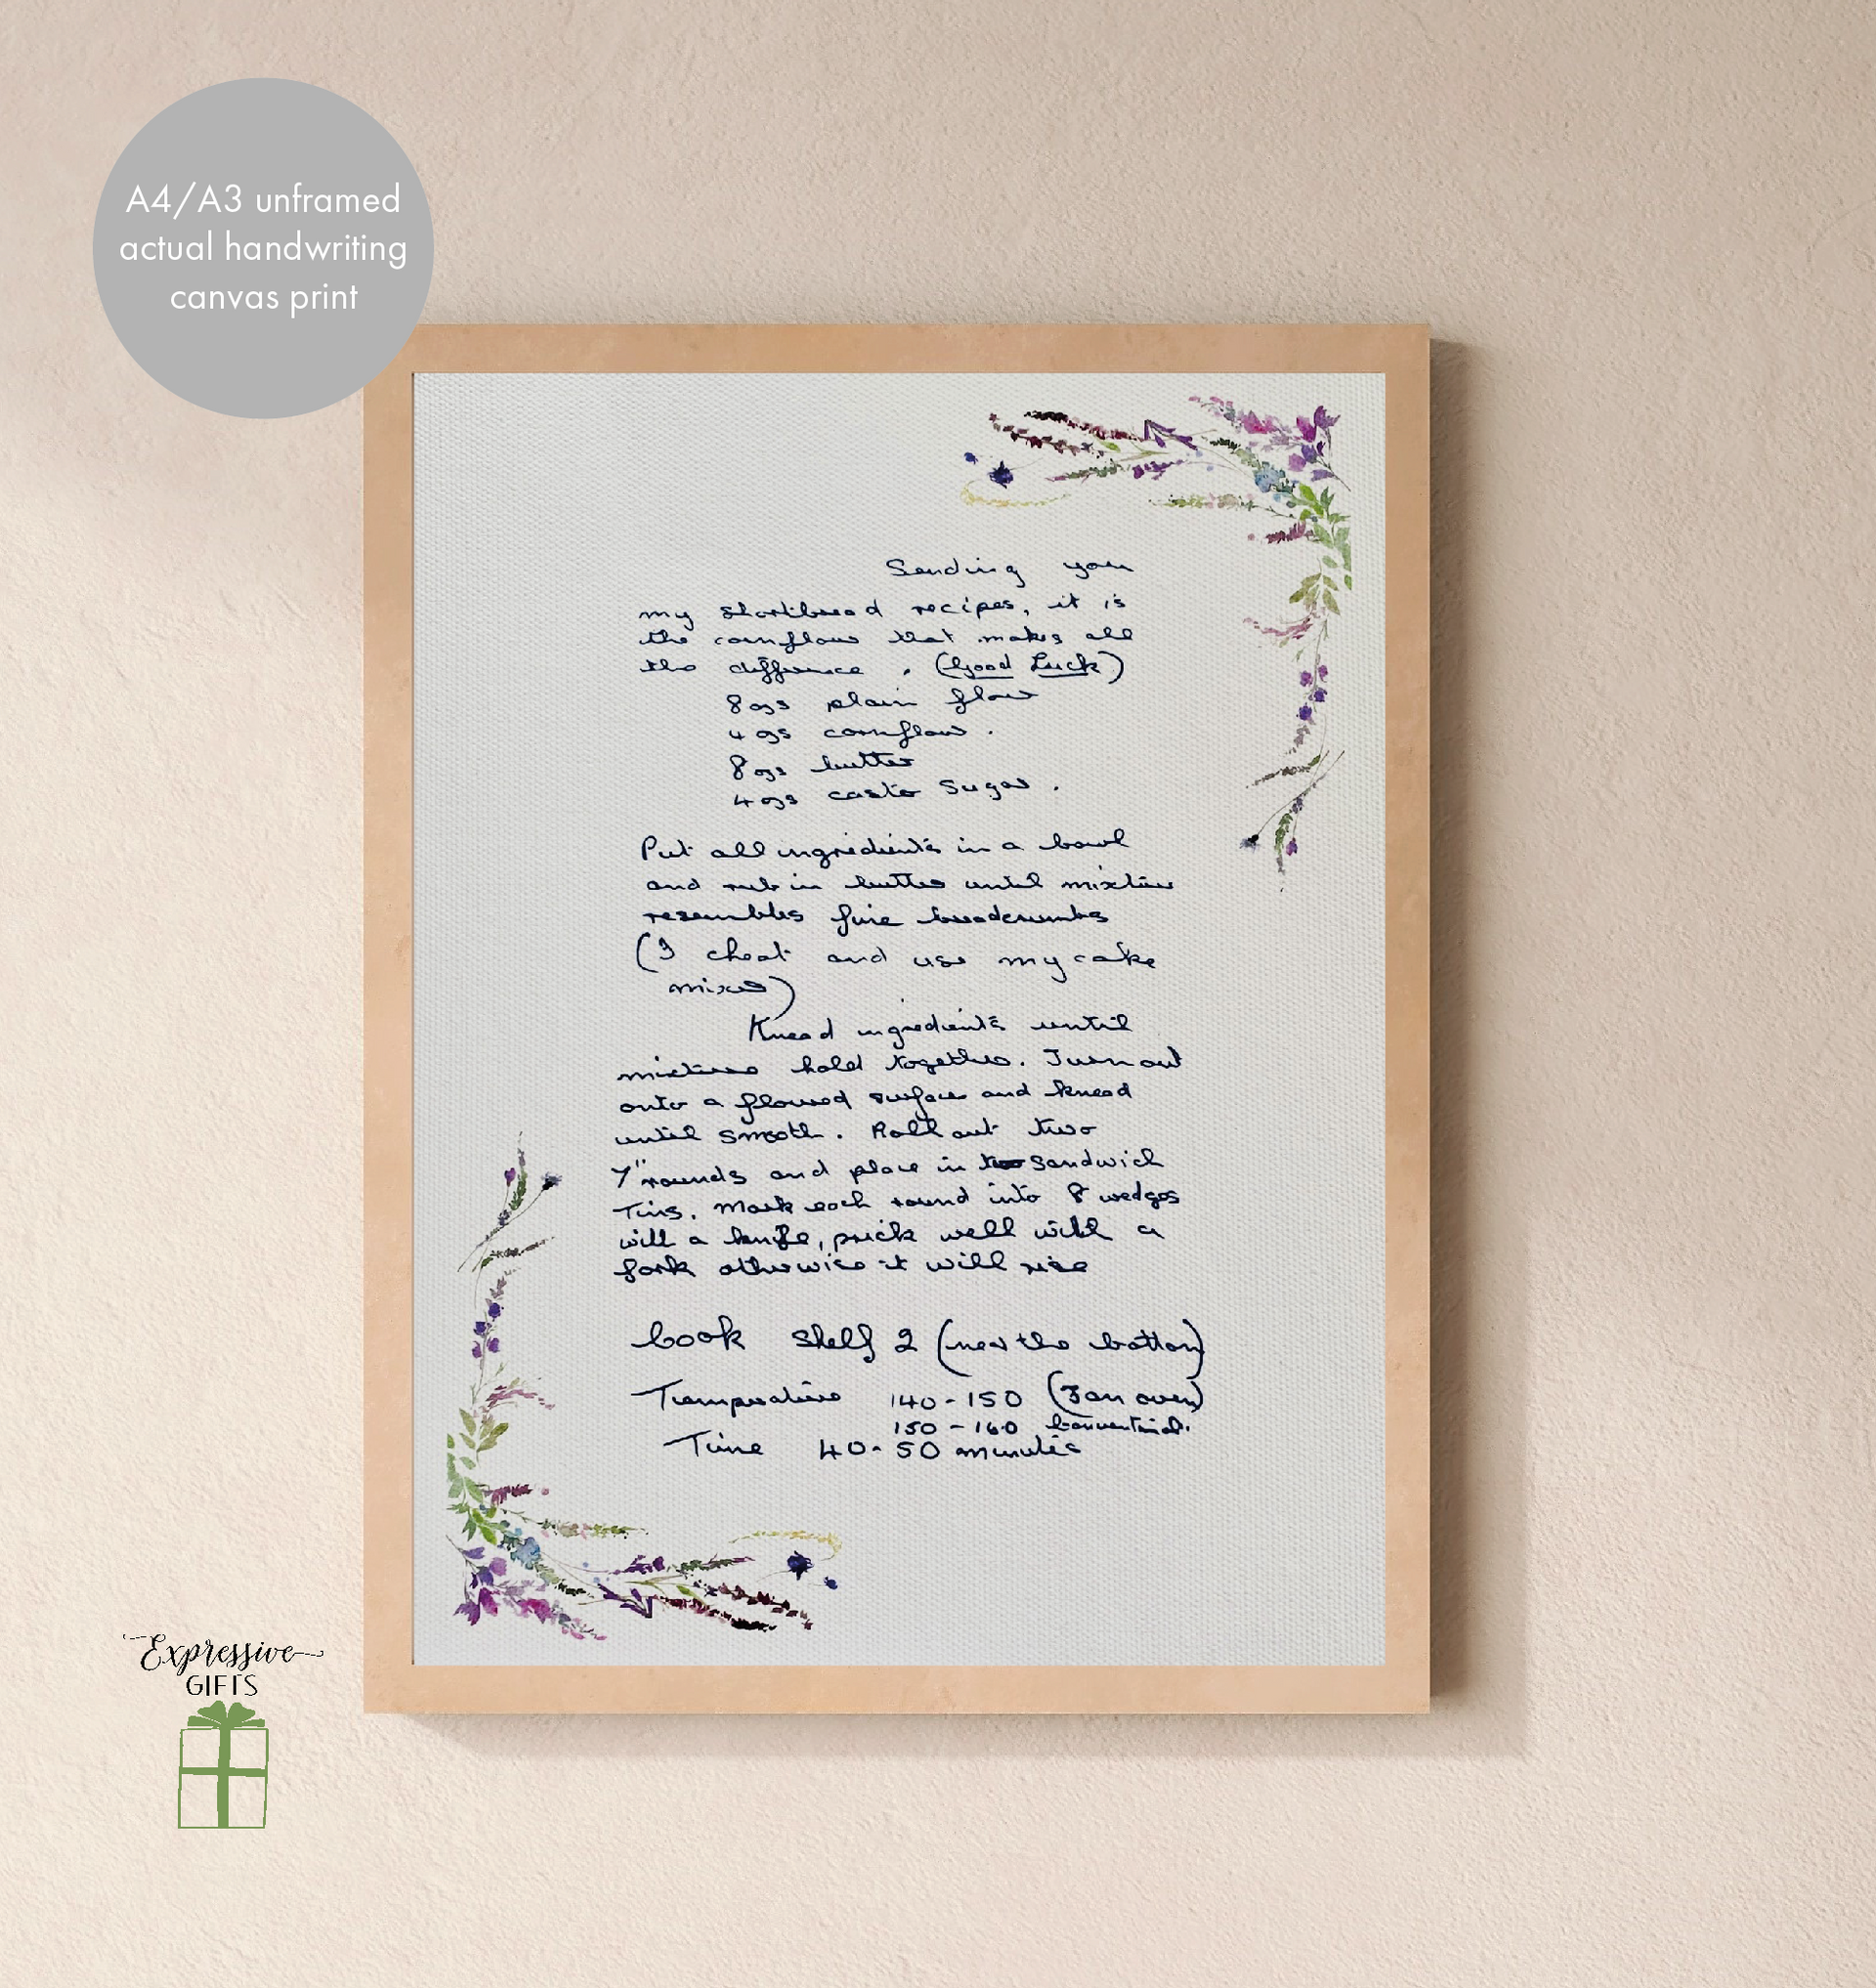 A4/A3 unframed
actual handwriting
canvas print
Sending you
my shortbread recipes, it is
the cornflour that makes all
the difference . (Good Luck)
8ozs plain flour
4 ozs cornflour .
8ozs butter
4ozs castor sugar .
Put all ingredients in a bowl
and rub in butter until mixture
resembles fine breadcrumbs
(I cheat and use my cake
mixer)
Knead ingredients until
mixture hold together. Turn out
onto a floured surface and knead
until smooth. Roll out two
7" rounds and place in sandwich
Tins. Mark each round into 8 wedges
with a knife, prick well with a
fork otherwise it will rise
Cook Shelf 2 (near the bottom)
Temperature 140-150 (Fan oven)
150 - 160 Conventional.
Time 40-50 minutes
Expressive
GIFTS